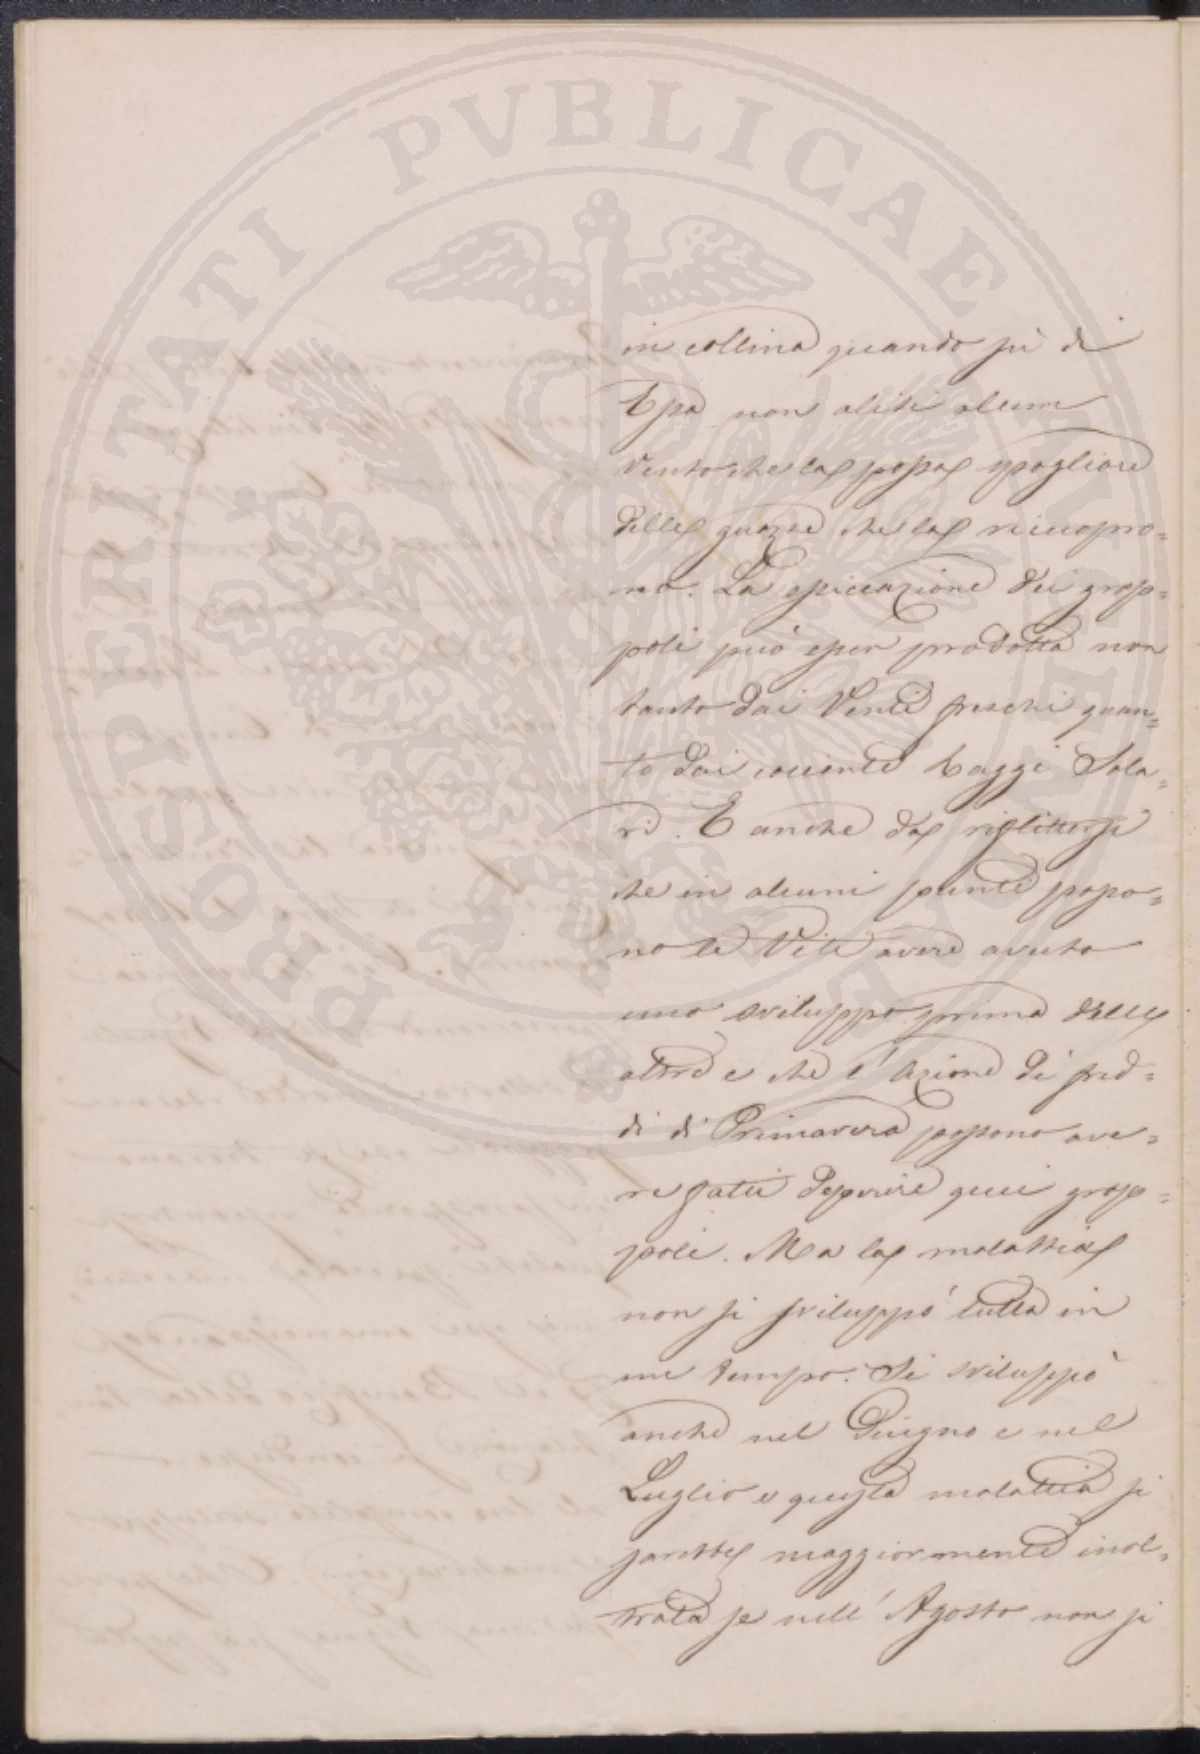 PROSPERITATI PVBLICAE AVGENDAE
in collina quando su di
Essa non aliti alcun
vento che la possa spogliare
delle guazze che la ricuopro=
no. La essiccazione dei grap=
poli può esser prodotta non
tanto dai Venti freschi quan=
to dai cocenti Raggi Sola=
ri. E anche da riflettersi
che in alcuni punti posso=
no le Viti avere avuto
uno sviluppo prima delle
altre e che l'azione di fred=
di di Primavera possono ave=
re fatti deperire quei grap=
poli. Ma la malattia
non si sviluppò tutta in
un tempo. Si sviluppò
anche nel Giugno e nel
Luglio e questa malattia si
sarebbe maggiormente inol=
trata se nell'Agosto non si